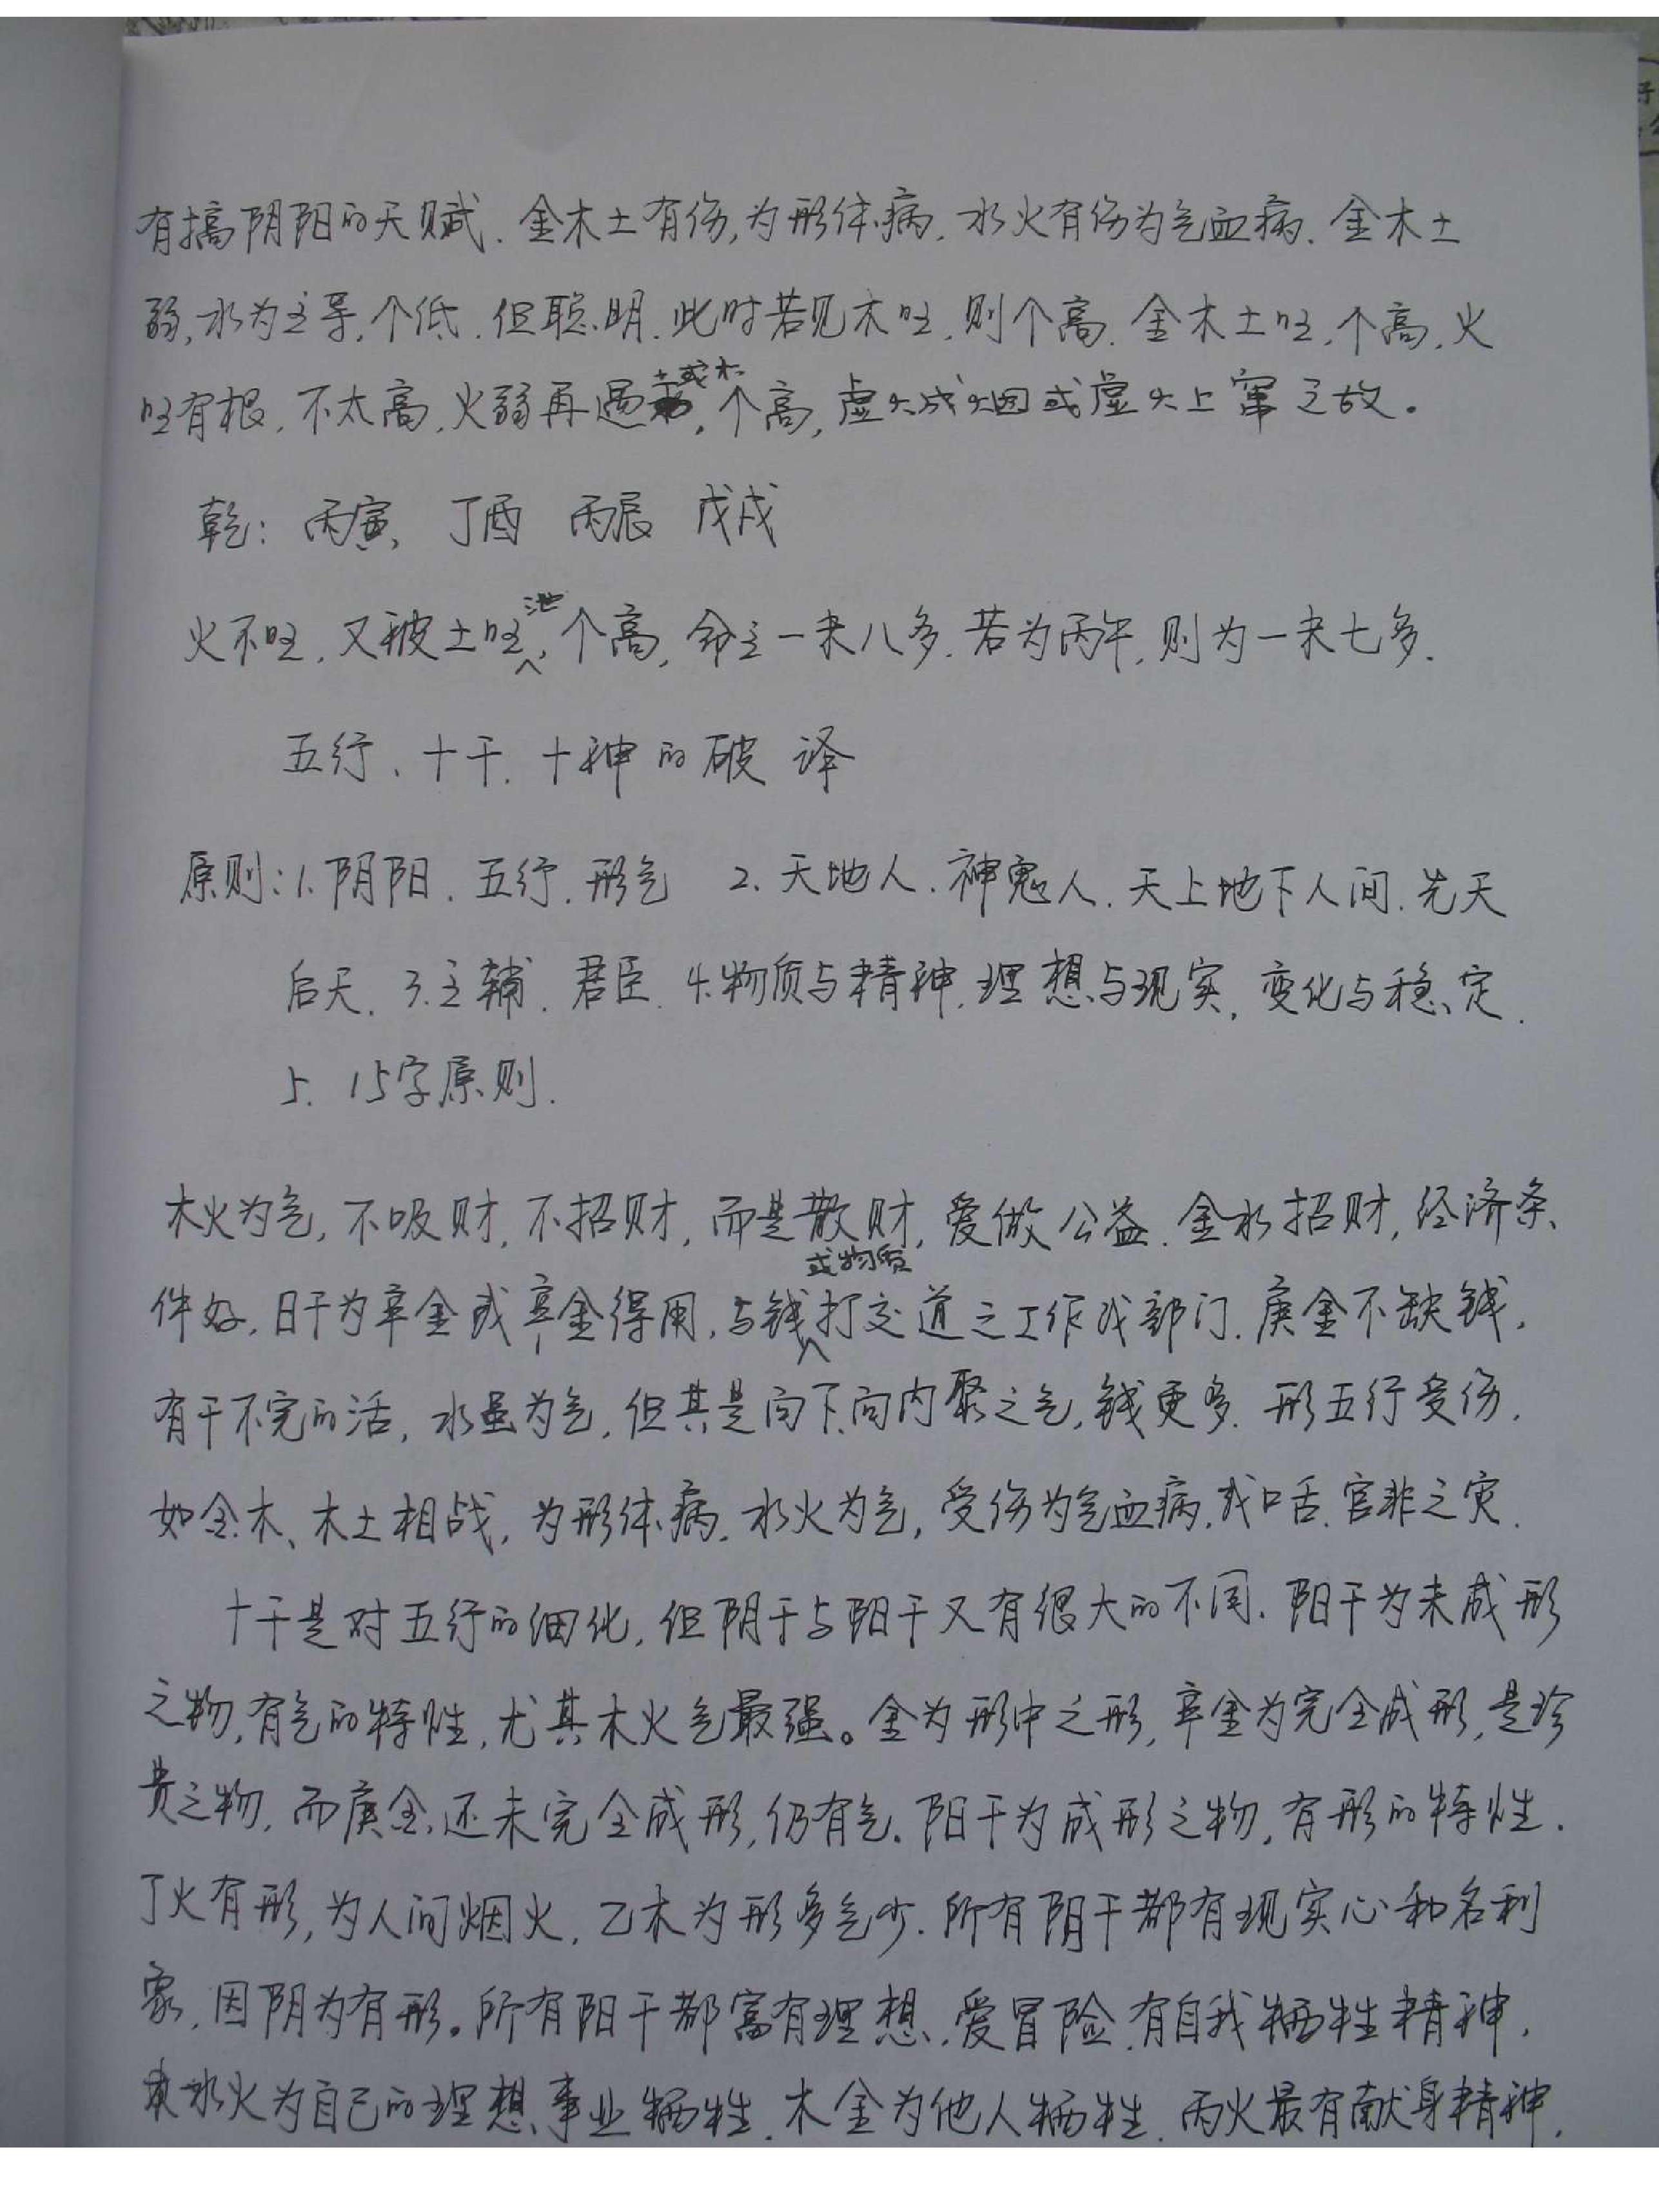 有搞阴阳的天赋.金木土有伤,为形体病.水火有伤为气血病.金木土
弱,水为主导,个低.但聪明.此时若见木旺,则个高.金木土旺,个高,火
旺有根,不太高,火弱再遇土或木,个高,虚火成烟或虚火上窜之故。
乾:丙寅、丁酉 丙辰 戊戌
火不旺,又被土旺泄,个高,命主一米八多.若为丙午,则为一米七多.
五行、十干.十神的破译
原则:1.阴阳.五行.形气 2、天地人.神鬼人.天上地下人间.先天
后天.3.主辅.君臣.4.物质与精神.理想与现实,变化与稳定.
5.15字原则.
木火为气,不吸财,不招财,而是散财,爱做公益.金水招财,经济条
件好,日干为辛金或辛金得用,与钱或物质打交道之工作或部门.庚金不缺钱,
有干不完的活,水虽为气,但其是向下、向内聚之气,钱更多.形五行受伤,
如金木、木土相战,为形体病.水火为气,受伤为气血病,或口舌.官非之灾.
十干是对五行的细化,但阴干与阳干又有很大的不同.阳干为未成形
之物,有气的特性,尤其木火气最强。金为形中之形,辛金为完全成形,是珍
贵之物,而庚金还未完全成形,仍有气.阳干为成形之物,有形的特性.
丁火有形,为人间烟火,乙木为形多气少.所有阴干都有现实心和名利
象,因阴为有形。所有阳干都富有理想,爱冒险,有自我牺牲精神,
水火为自己的理想、事业牺牲.木金为他人牺牲.丙火最有献身精神,